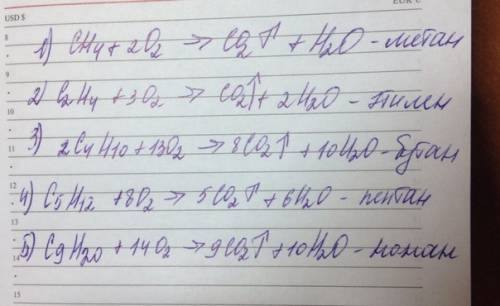 USD $
EUR €
8
1) CH4 + 2O2 → CO2↑ + H2O - метан
9
2) C2H4 + 3O2 → CO2↑ + 2H2O - этилен
10
3)
11
2C4H10 + 13O2 → 8CO2↑ + 10H2O - бутан
12
4) C5H12 + 8O2 → 5CO2↑ + 6H2O - пентан
13
5) C9H20 + 14O2 → 9CO2↑ + 10H2O - нонан
14
15